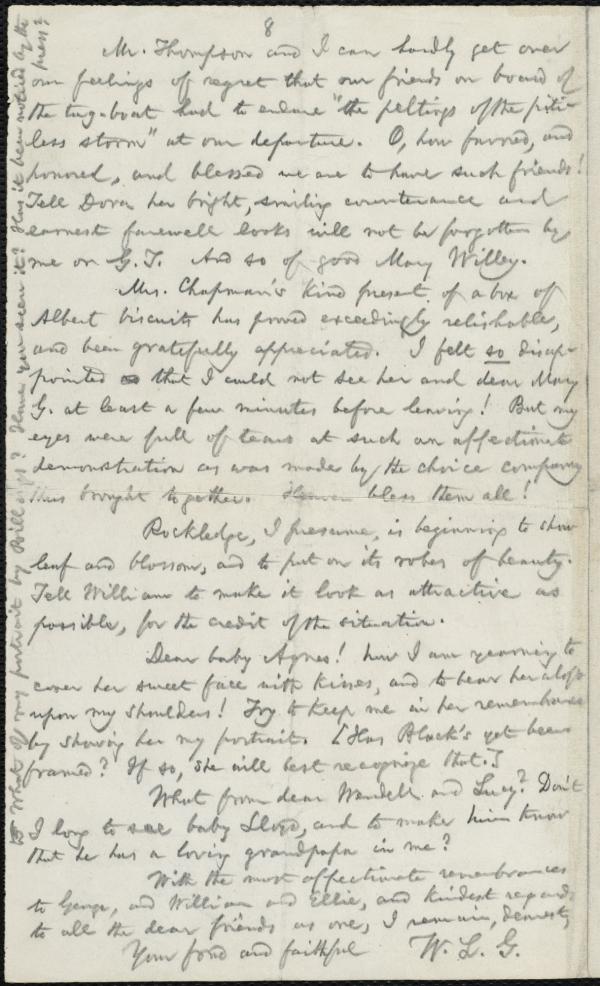 8
Mr. Thompson and I can hardly get over
our feelings of regret that our friends on board of
the tug-boat had to endure "the peltings of the piti-
less storm" at our departure. O, how favored, and
honored, and blessed we are to have such friends!
Tell Dora her bright, smiling countenance and
earnest farewell looks will not be forgotten by
me or G. T. And so of good Mary Willey.
Mrs. Chapman's kind present of a box of
Albert biscuits has proved exceedingly relishable,
and been gratefully appreciated. I felt so disap-
pointed that I could not see her and dear Mary
G. at least a few minutes before leaving! But my
eyes were full of tears at such an affectionate
demonstration as was made by the choice company
thus brought together. Heaven bless them all!
Rockledge, I presume, is beginning to show
leaf and blossom, and to put on its robes of beauty.
Tell William to make it look as attractive as
possible, for the credit of the situation.
Dear baby Agnes! how I am yearning to
cover her sweet face with kisses, and to bear her aloft
upon my shoulders! Try to keep me in her remembrance
by showing her my portrait. [Has Black's yet been
framed? If so, she will best recognize that.]
What from dear Wendell and Lucy? Don't
I long to see baby Lloyd, and to make him know
that he has a loving grandpapa in me?
With the most affectionate remembrances
to George, and William and Ellie, and kindest regards
to all the dear friends as one, I remain, dearest,
Your fond and faithful W. L. G.
What of my portrait by Billings? Have you seen it? Has it been noticed by the
press?